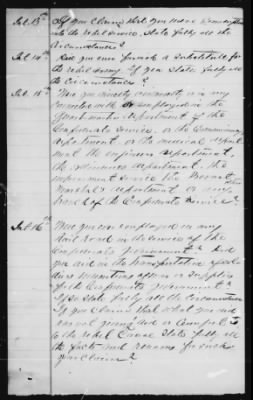 Int. 13th If you claim that you were conscripted
into the rebel service, State fully all the
circumstances?
Int. 14th Did you ever furnish a Substitute for
the rebel Army, if yea State fully all
the circumstances?
Int. 15th Were you directly connected in any
with or employed in the
Quartermaster department of the
Confederate Service, or the Commissary
department, or the medical depart
ment the engineer department,
the Ordinance department, the
impressment Service the Provost
Marshal's department or any other
branch of the Confederate Service?
Int. 16th Were you ever employed in any
Rail Road in the Service of the
Confederate Government? Did
you aid in the transportation of sol
diers munitions of war or Supplies
for the Confederate Government?
If so state fully all the circumstances
If you claim that what you did
was not going aid or Comfort to
to the rebel Cause State fully all
the facts and reasons for such
your claim?